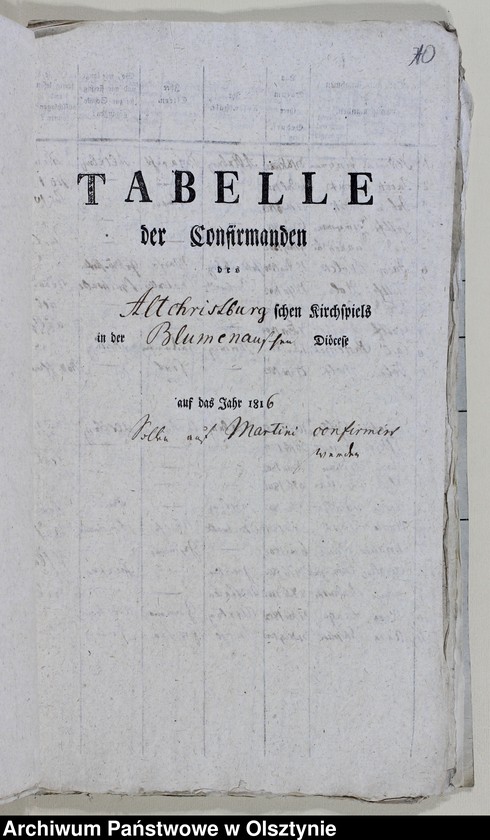 10
TABELLE
der Confirmanden
des
Altchristburg schen Kirchspiels
in der Blumenauschen Diöcese
auf das Jahr 1816
Sollen auf Martini confirmirt
werden
Archiwum Państwowe w Olsztynie